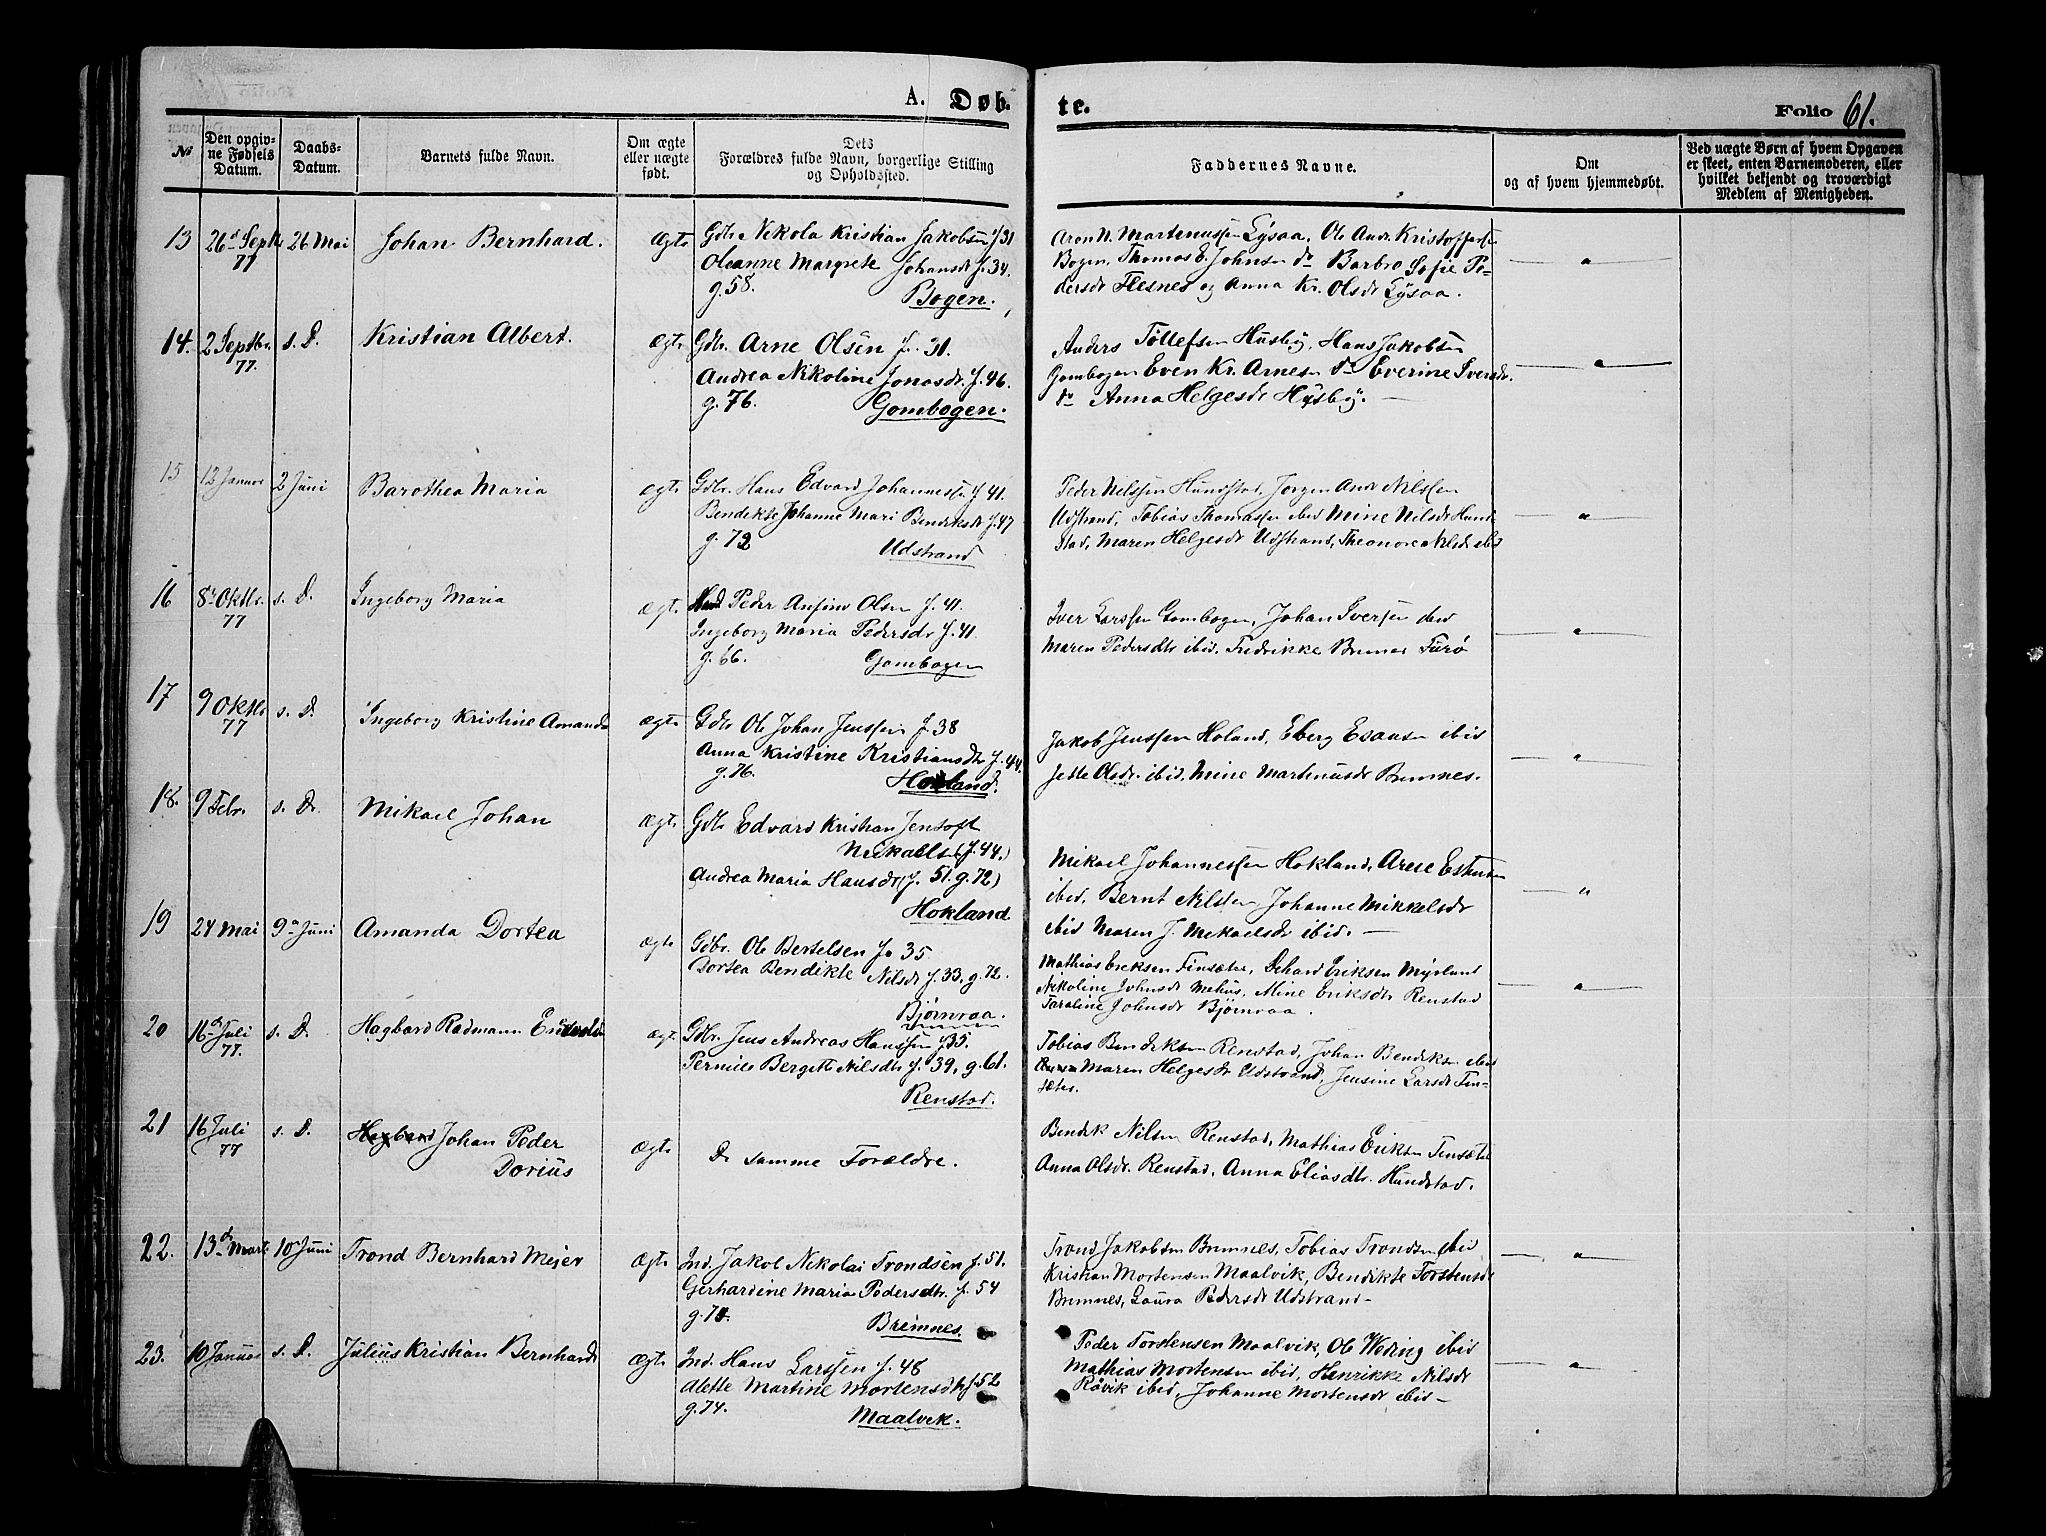 A. Døb-
te.
Folio 61.
№
Den opgiv-
ne Fødsels
Datum.
Daabs-
Datum.
Barnets fulde Navn.
Om ægte
eller uægte
født.
Dets
Forældres fulde Navn, borgerlige Stilling
og Opholdssted.
Faddernes Navne.
Om
og af hvem hjemmedøbt.
Ved uægte Børn af hvem Opgaven
er skeet, enten Barnemoderen, eller
hvilket bekjendt og troværdigt
Medlem af Menigheden.
13 26d Septb 26 Mai Johan Bernhard. ægte Gdbr Nikolai Kristian Jakobsen f. 31
77 Oleanne Margrete Johansdr f. 34.
g. 58. Bogen.
Aron N. Martinussen Lysaa, Ole Andr. Kristoffersen
Bogen, Thomas E. Johnsen do Barbro Sofie Pe-
dersdr Flesnes og Anna Kr. Olsdr Lysaa.
14. 2 Septbr. s. D. Kristian Albert. ægte Gdbr. Arne Olsen f. 31.
77. Andrea Nikoline Jonasdr. f. 46.
g. 76. Gombogen.
Anders Tollefsen Husby, Hans Jakobsen
Gombogen Even Kr. Arnesen do Everine Iversdr.
do Anna Helgesdr Husby.
15 12 Januar 2 Juni Barothea Maria ægte Gdbr. Hans Edvard Johannessen f. 41.
Bendikte Johanne Mari Bendiksdr f. 47
g. 72 Udstrand
Peder Nilssen Hundstad, Jørgen Andr Nilssen
Udstrand, Tobias Thomassen ibid Mine Nilsdr Hund-
stad, Maren Helgesdr Udstrand, Theanore Nilsdr ibid
16 8de Oktbr. s. D. Ingeborg Maria ægte Peder Ansino Olsen f. 41.
77 Ingeborg Maria Pedersdr f. 41
g. 66. Gombogen
Iver Larssen Gombogen, Johan Iversen
Maren Pedersdtr ibid. Fredrikke Furø
17 9 Oktbr s. D. Ingeborg Kristine Amanda ægte Gdbr Ole Johan Jenssen f. 38
77 Anna Kristine Kristiansdtr f. 44.
g. 76. Hokland.
Jakob Jenssen Holand, Eberg Esausen ibid
Jette Olsdr. ibid. Mine Martinusdr Bremnes.
18. 9 Febr. s. D. Mikael Johan ægte Gdbr Edvard Kristian Jentoft
Mikaelsen (f. 44.)
Andrea Maria Hansdr (f. 51. g. 72)
Hokland
Mikael Johannessen Hokland, Arne
ibid. Bernt Nilsen, Johanne Mikkelsdr
ibid Maren J. Mikaelsdr ibid. —
19 24 Mai 9de Juni Amanda Dortea ægte Gdbr. Ole Bertelsen f. 35
Dortea Bendikte Nilsdr f. 33. g. 72.
Bjørnraa.
Mathias Eriksen Finsæter, Eriksen Myrland
Nikoline Johnsdr Mehus, Mine Eriksdtr Renstad
Taraline Johnsdr Bjørnraa.
20 16d Juli s. D. Hagbard Radmann ægte Gdbr. Jens Andreas Hanssen f. 35.
77. Pernille Bergitte Nilsdtr f. 39, g. 61.
Renstad.
Tobias Bendiksen Renstad, Johan Bendiksen ibid
Maren Helgesdr Udstrand, Jensine Larsdr Fin-
sæter.
21 16 Juli s. D. Hagbard Johan Peder ægte De samme Forældre.
77 Dorius
Bendik Nilsen Renstad, Mathias Eriksen Finsæter
Anna Olsdr. Renstad, Anna Eliasdtr. Hundstad.
22. 13de Marts 10 Juni Trond Bernhard Mejer ægte Ind. Jakob Nikolai Trondsen f. 51.
Gerhardine Maria Pedersdtr. f. 54
Bremnes.
Trond Jakobsen Bremnes, Tobias Trondsen ibid
Kristian Mortensen Maalvik, Bendikte Torstensdr
Bremnes, Laura Pedersdr Udstrand —
23. 10 Januar s. D. Julius Kristian Bernhard ægte Ind. Hans Larssen f. 48
Alette Martine Mortensdtr f. 52
g. 74. Maalvik.
Peder Torstensen Maalvik, Ole Weding ibid
Mathias Mortensen ibid, Henrikke Nilsdr
Røvik ibid, Johanne Mortensdr ibid —